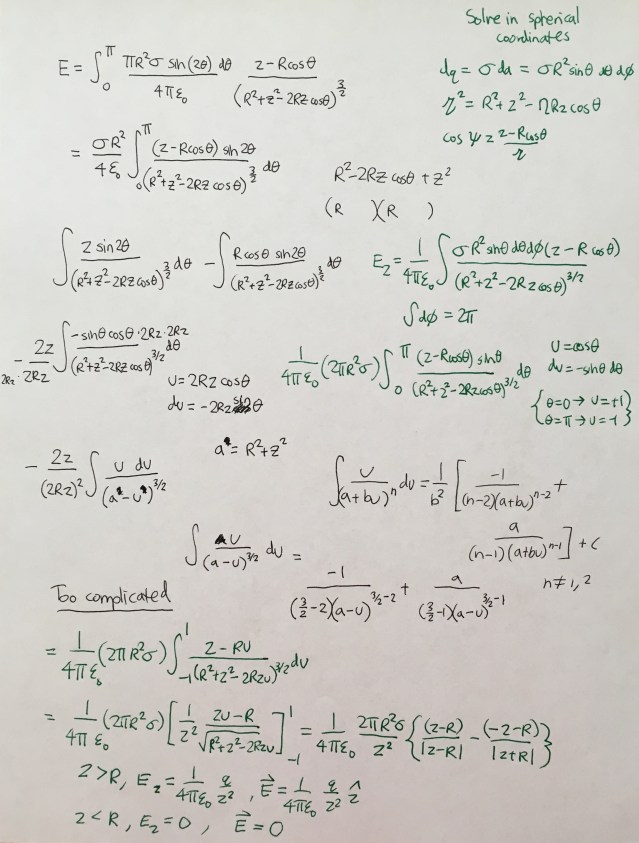 Solve in spherical
coordinates
E = ∫₀^π πR²σ sin(2θ) dθ / 4πε₀ · z-Rcosθ / (R²+z²-2Rz cosθ)^(3/2)
dq = σ da = σR² sinθ dθ dϕ
η² = R²+z²-ηRz cosθ
cos ψ = z-Rcosθ / η
= σR²/4ε₀ ∫₀^π (z-Rcosθ) sin 2θ / (R²+z²-2Rz cosθ)^(3/2) dθ
R²-2Rz cosθ + z²
(R )(R )
∫ z sin2θ / (R²+z²-2Rz cosθ)^(3/2) dθ - ∫ Rcosθ sin2θ / (R²+z²-2Rz cosθ)^(3/2) dθ
E_z = 1/4πε₀ ∫ σR² sinθ dθ dϕ (z-R cosθ) / (R²+z²-2Rz cosθ)^(3/2)
∫dϕ = 2π
- 2z / 2Rz·2Rz ∫ -sinθ cosθ·2Rz·2Rz / (R²+z²-2Rz cosθ)^(3/2) dθ
u = 2Rz cosθ
du = -2Rz sinθ
1/4πε₀ (2πR²σ) ∫₀^π (z-Rcosθ) sinθ / (R²+z²-2Rzcosθ)^(3/2) dθ
u = cosθ
du = -sinθ dθ
{θ=0 → u=+1
θ=π → u=-1}
a = R²+z²
- 2z / (2Rz)² ∫ u du / (a-u)^(3/2)
∫ u / (a+bu)^n du = 1/b² [ -1 / (n-2)(a+bu)^(n-2) +
a / (n-1)(a+bu)^(n-1) ] + c
n≠1,2
∫ u / (a-u)^(3/2) du = -1 / (3/2-2)(a-u)^(3/2-2) + a / (3/2-1)(a-u)^(3/2-1)
Too complicated
= 1/4πε₀ (2πR²σ) ∫₋₁^1 z-Ru / (R²+z²-2Rzu)^(3/2) du
= 1/4πε₀ (2πR²σ) [ 1/z² zu-R / √(R²+z²-2Rzu) ]₋₁^1 = 1/4πε₀ 2πR²σ/z² { (z-R)/|z-R| - (-z-R)/|z+R| }
z>R, E_z = 1/4πε₀ q/z², E⃗ = 1/4πε₀ q/z² ẑ
z<R, E_z = 0, E⃗ = 0